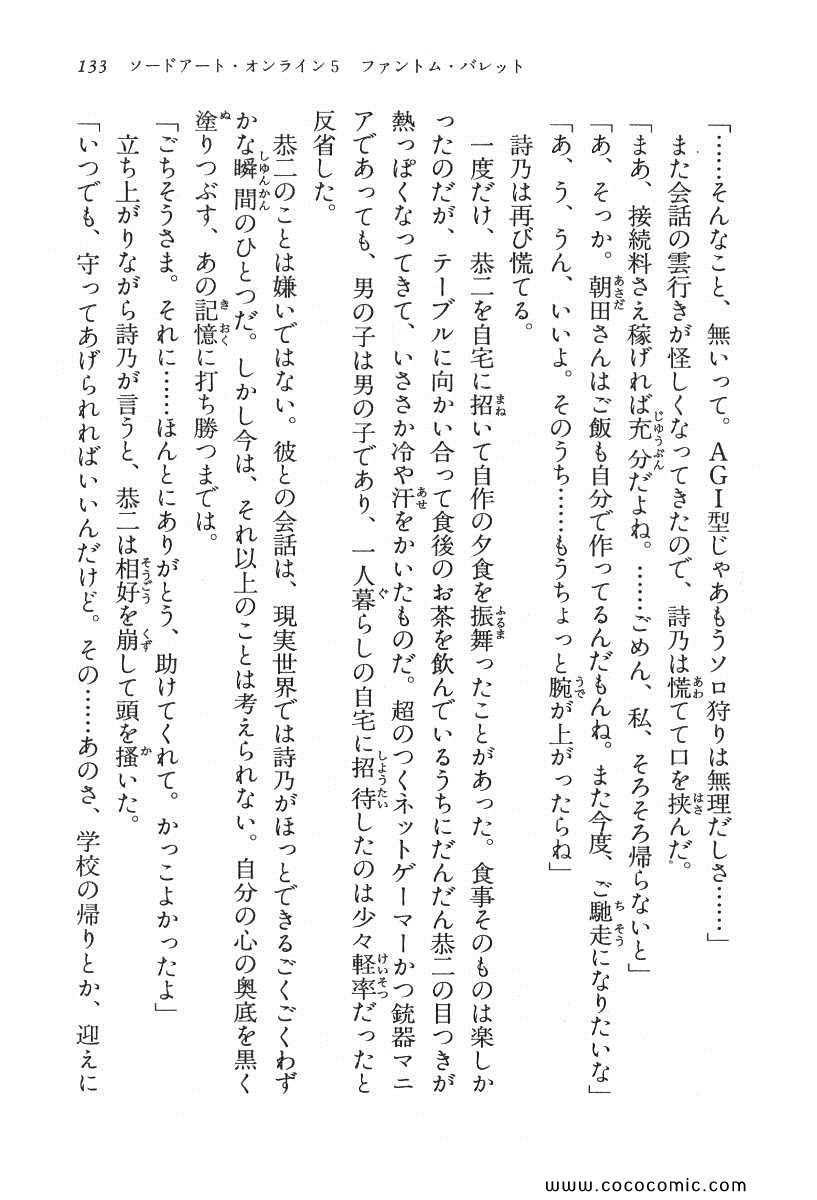 133 ソードアート・オンライン5 ファントム・バレット
「……そんなこと、無いって。AGI型じゃあもうソロ狩りは無理だしさ……」
また会話の雲行きが怪しくなってきたので、詩乃は慌てて口を挟んだ。
「まあ、接続料さえ稼げれば充分だよね。……ごめん、私、そろそろ帰らないと」
「あ、そっか。朝田さんはご飯も自分で作ってるんだもんね。また今度、ご馳走になりたいな」
「あ、う、うん、いいよ。そのうち……もうちょっと腕が上がったらね」
詩乃は再び慌てる。
一度だけ、恭二を自宅に招いて自作の夕食を振舞ったことがあった。食事そのものは楽しか
ったのだが、テーブルに向かい合って食後のお茶を飲んでいるうちにだんだん恭二の目つきが
熱っぽくなってきて、いささか冷や汗をかいたものだ。超のつくネットゲーマーかつ銃器マニ
アであっても、男の子は男の子であり、一人暮らしの自宅に招待したのは少々軽率だったと
反省した。
恭二のことは嫌いではない。彼との会話は、現実世界では詩乃がほっとできるごくごくわず
かな瞬間のひとつだ。しかし今は、それ以上のことは考えられない。自分の心の奥底を黒く
塗りつぶす、あの記憶に打ち勝つまでは。
「ごちそうさま。それに……ほんとにありがとう、助けてくれて。かっこよかったよ」
立ち上がりながら詩乃が言うと、恭二は相好を崩して頭を掻いた。
「いつでも、守ってあげられればいいんだけど。その……あのさ、学校の帰りとか、迎えに
www.cococomic.com